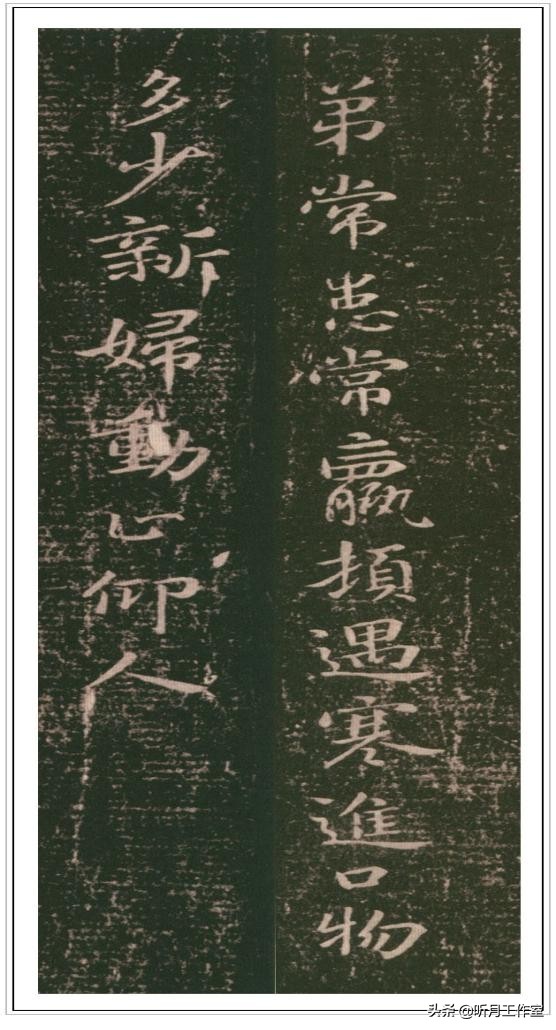 弟常患常羸頓遇寒進口物
多少新婦動止仰人
头条 @听月工作室